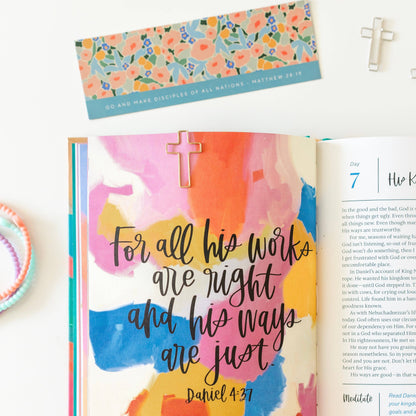 GO AND MAKE DISCIPLES OF ALL NATIONS - MATTHEW 28:19
For all his works
are right
and his ways
are just.
Daniel 4:37
Day
7
His
In the good and the bad, God is
when things get ugly. Even thou
all things new. Even though man
His ways are trustworthy.
For me, seasons of waiting h
God isn't listening, so-out of
won't do something, then I
I get frustrated with God or over
uncomfortable place.
In Daniel's account of King
rope. He wanted to keep his kingdom
it done—until God stepped in. T
in with cows, for crying out loud
control. Life found him in a hars
goodness known.
As with Nebuchadnezzar's
today. God often uses our circum
of our dependence on Him. For
out is a God who separated Him
In His righteousness, He met so
He may not have you grazing
season nonetheless. So in your w
God and you are not. Don't let th
heart for His grace.
His ways are good—in that w
Meditate
Read Danie
your kingdo
goals and